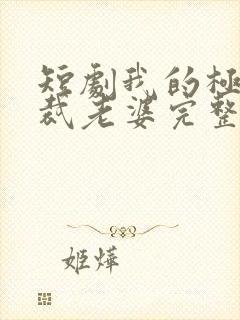 短劇我的極
裁老婆完整
姬燁